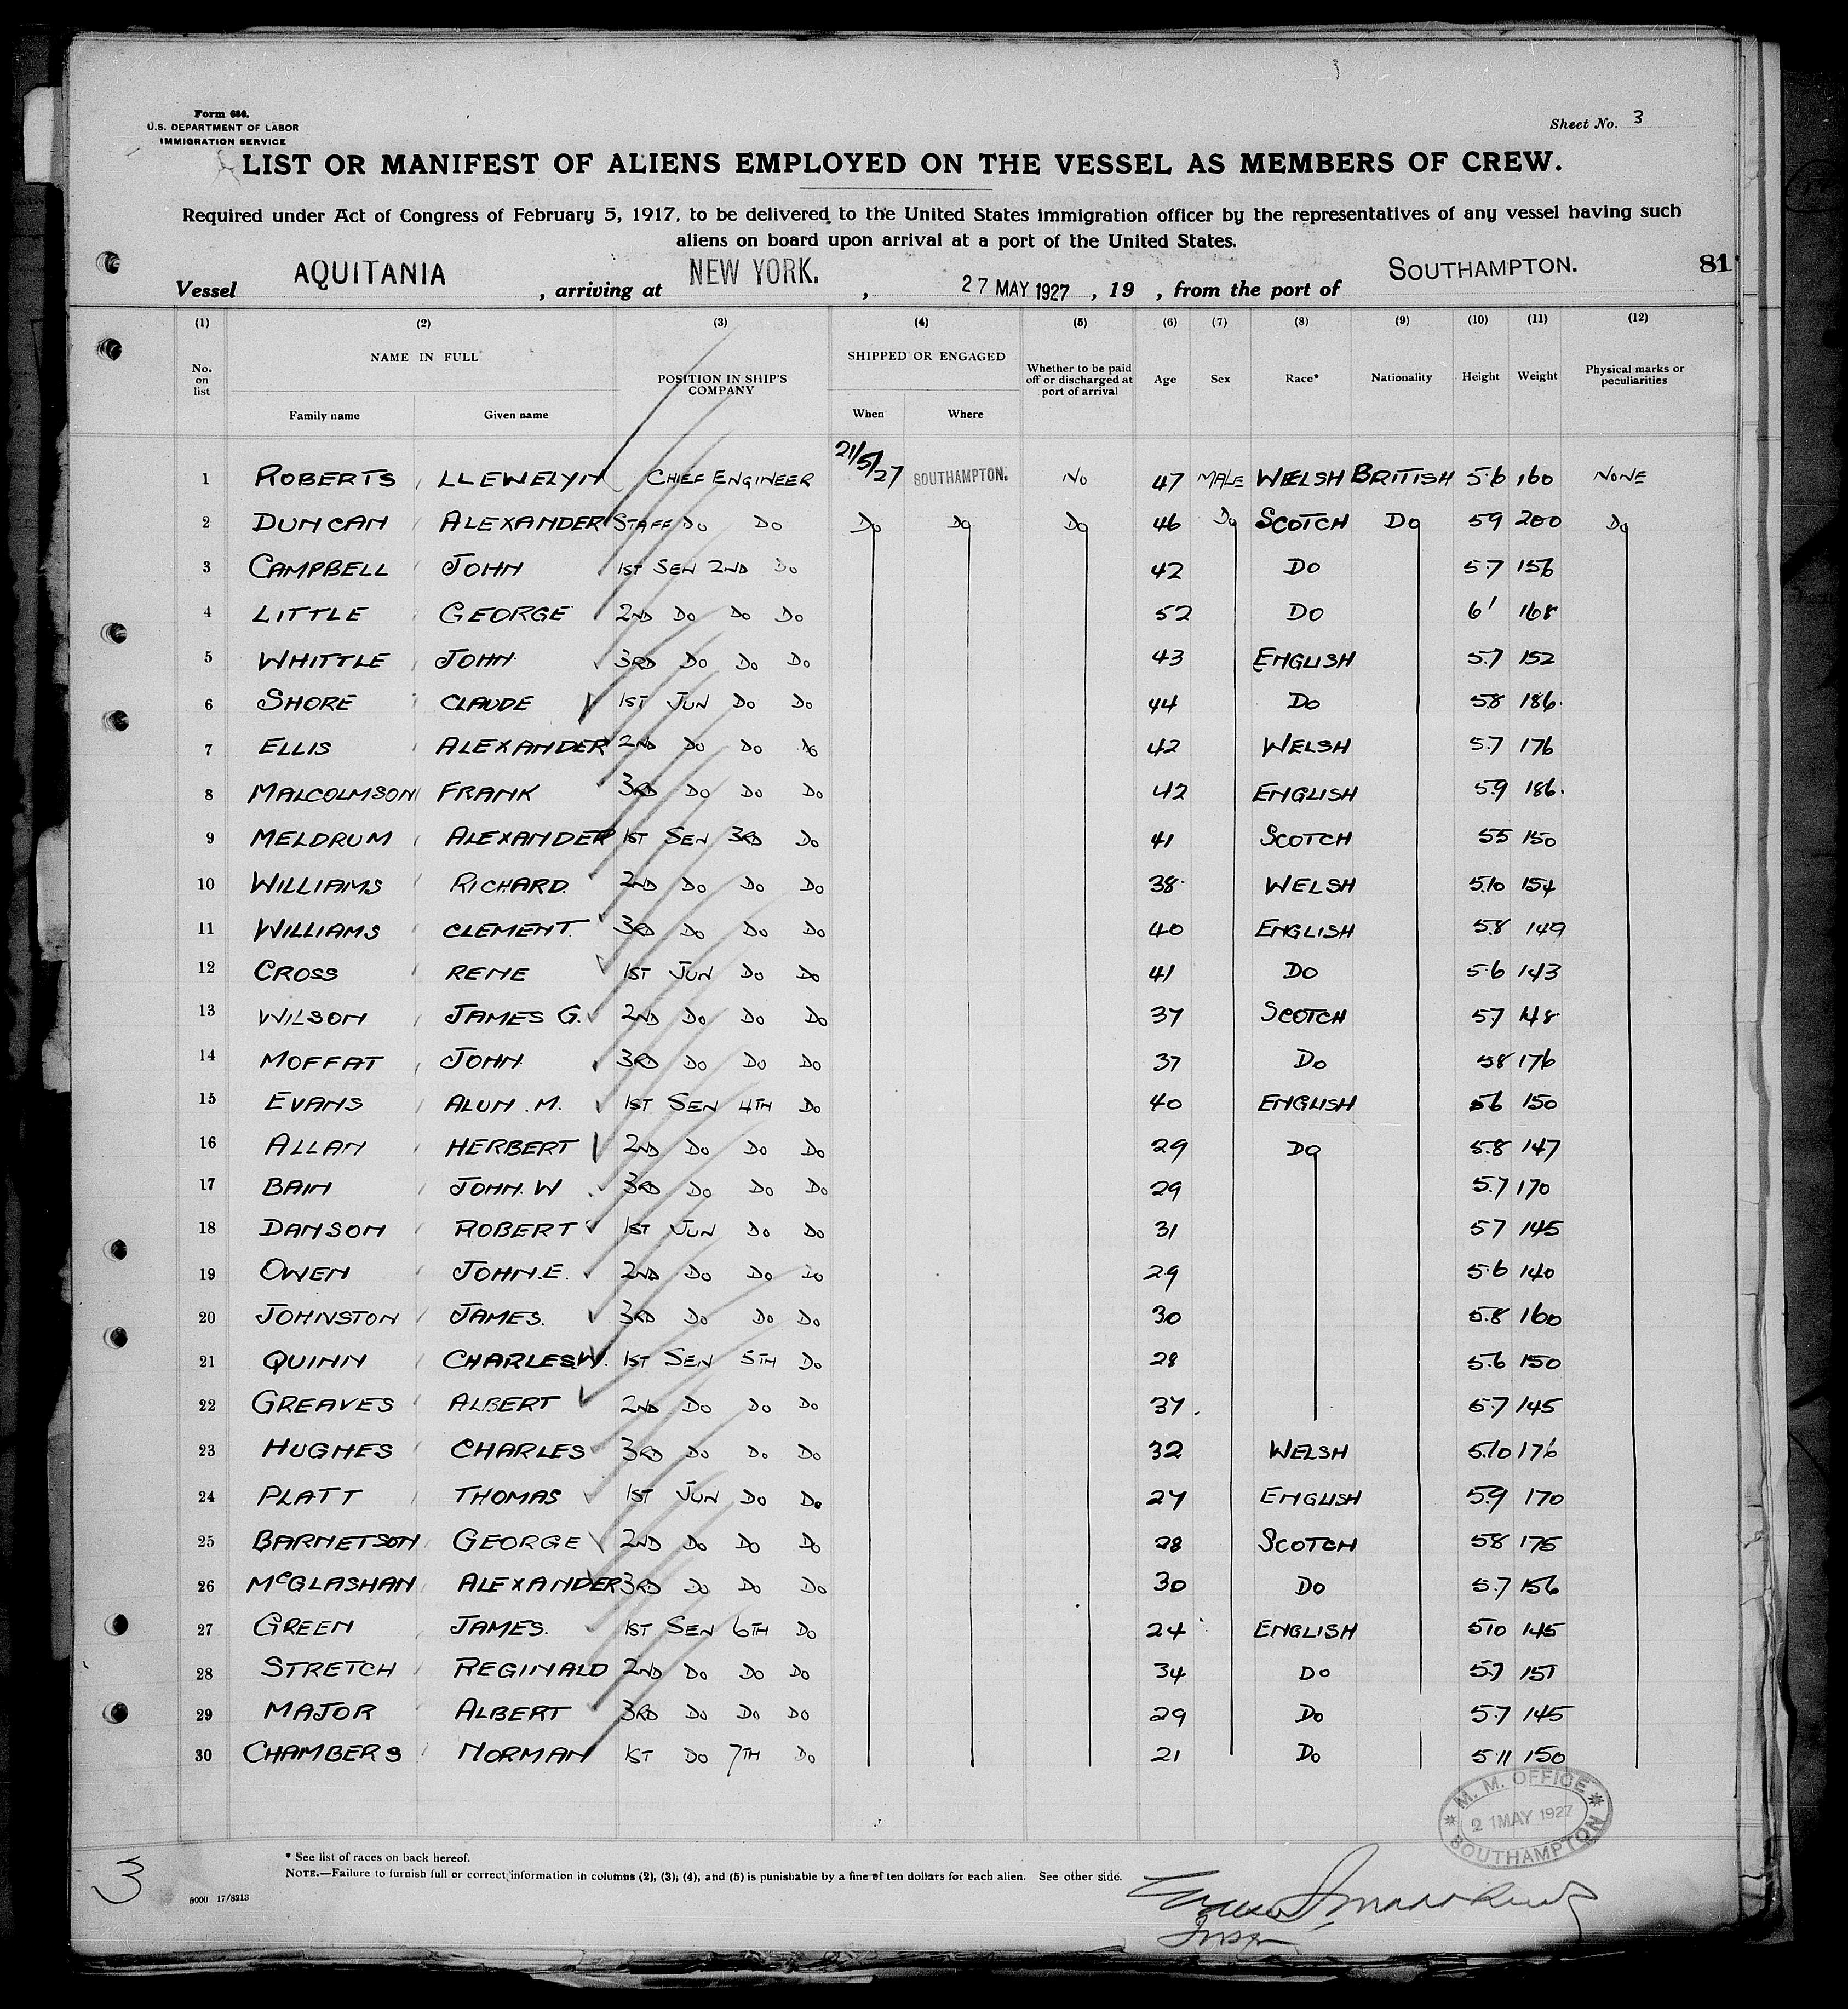 Form 680.
U.S. DEPARTMENT OF LABOR
IMMIGRATION SERVICE
Sheet No. 3
LIST OR MANIFEST OF ALIENS EMPLOYED ON THE VESSEL AS MEMBERS OF CREW.
Required under Act of Congress of February 5, 1917, to be delivered to the United States immigration officer by the representatives of any vessel having such
aliens on board upon arrival at a port of the United States.
Vessel AQUITANIA , arriving at NEW YORK. , 27 MAY 1927 , 19 , from the port of SOUTHAMPTON. 81
(1) (2) (3) (4) (5) (6) (7) (8) (9) (10) (11) (12)
No. on list NAME IN FULL Family name Given name POSITION IN SHIP'S COMPANY SHIPPED OR ENGAGED When Where Whether to be paid off or discharged at port of arrival Age Sex Race* Nationality Height Weight Physical marks or peculiarities
1 ROBERTS LLEWELYN CHIEF ENGINEER 21/5/27 SOUTHAMPTON. NO 47 MALE WELSH BRITISH 5.6 160 NONE
2 DUNCAN ALEXANDER STAFF DO DO DO DO DO 46 DO SCOTCH DO 59 200 DO
3 CAMPBELL JOHN 1ST SEN 2ND DO 42 DO 57 156
4 LITTLE GEORGE 2ND DO DO DO 52 DO 6' 168
5 WHITTLE JOHN 3RD DO DO DO 43 ENGLISH 5.7 152
6 SHORE CLAUDE 1ST JUN DO DO 44 DO 58 186.
7 ELLIS ALEXANDER 2ND DO DO DO 42 WELSH 5.7 176
8 MALCOLMSON FRANK 3RD DO DO DO 42 ENGLISH 59 186.
9 MELDRUM ALEXANDER 1ST SEN 3RD DO 41 SCOTCH 55 150
10 WILLIAMS RICHARD. 2ND DO DO DO 38 WELSH 5.10 154
11 WILLIAMS CLEMENT. 3RD DO DO DO 40 ENGLISH 5.8 149
12 CROSS RENE 1ST JUN DO DO 41 DO 5.6 143
13 WILSON JAMES G. 2ND DO DO DO 37 SCOTCH 57 148
14 MOFFAT JOHN 3RD DO DO DO 37 DO 58 176
15 EVANS ALUN . M. 1ST SEN 4TH DO 40 ENGLISH 56 150
16 ALLAN HERBERT 2ND DO DO DO 29 DO 5.8 147
17 BAIN JOHN. W 3RD DO DO DO 29 5.7 170
18 DANSON ROBERT 1ST JUN DO DO 31 57 145
19 OWEN JOHN.E. 2ND DO DO DO 29 5.6 140
20 JOHNSTON JAMES. 3RD DO DO DO 30 5.8 160
21 QUINN CHARLES.W. 1ST SEN 5TH DO 28 5.6 150
22 GREAVES ALBERT 2ND DO DO DO 37 . 5.7 145
23 HUGHES CHARLES 3RD DO DO DO 32 WELSH 5.10 176
24 PLATT THOMAS 1ST JUN DO DO 27 ENGLISH 5.9 170
25 BARNETSON GEORGE 2ND DO DO DO 28 SCOTCH 58 175
26 McGLASHAN ALEXANDER 3RD DO DO DO 30 DO 5.7 156
27 GREEN JAMES. 1ST SEN 6TH DO 24 ENGLISH 510 145
28 STRETCH REGINALD 2ND DO DO DO 34 DO 5.7 151
29 MAJOR ALBERT 3RD DO DO DO 29 DO 5.7 145
30 CHAMBERS NORMAN 1ST DO 7TH DO 21 DO 5.11 150
M. M. OFFICE
21 MAY 1927
SOUTHAMPTON
* See list of races on back hereof.
NOTE.—Failure to furnish full or correct information in columns (2), (3), (4), and (5) is punishable by a fine of ten dollars for each alien. See other side.
3
5000 17/8213